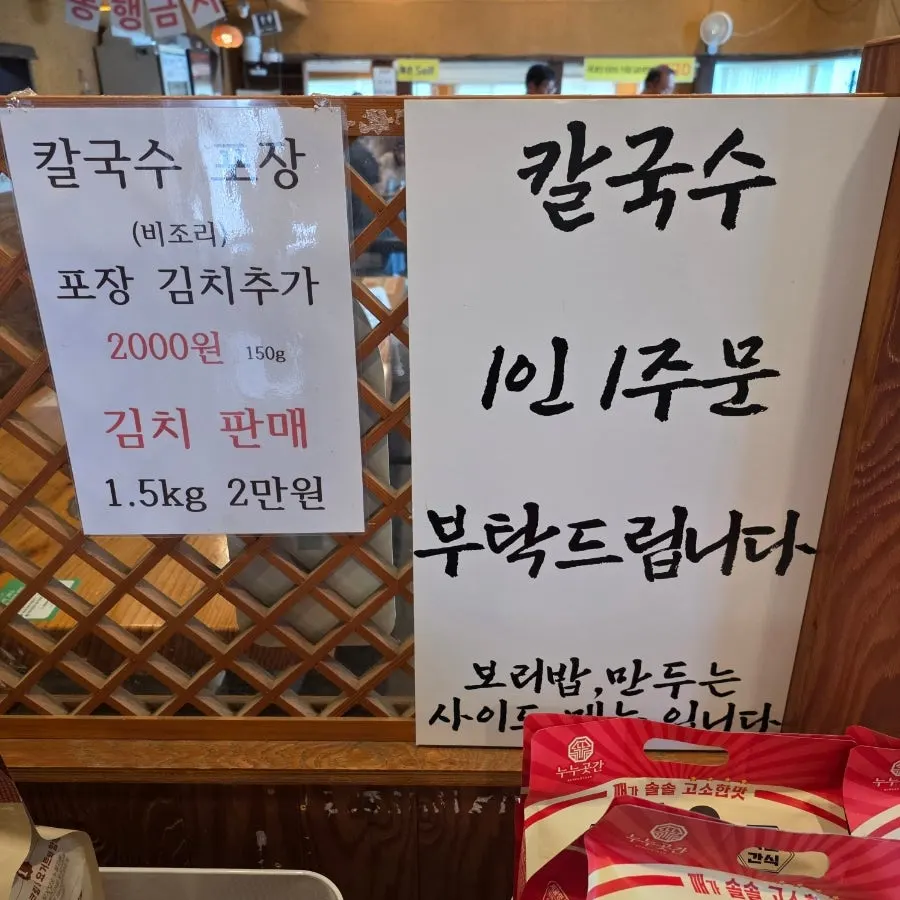 칼국수 포장
(비조리)
포장 김치추가
2000원 150g
김치 판매
1.5kg 2만원
칼국수
1인 1주문
부탁드립니다
보리밥,만두는
사이드 메뉴 입니다
누누곳간
깨가 솔솔 고소한맛
간식
누누곳간
깨가 솔솔 고소한맛
Self